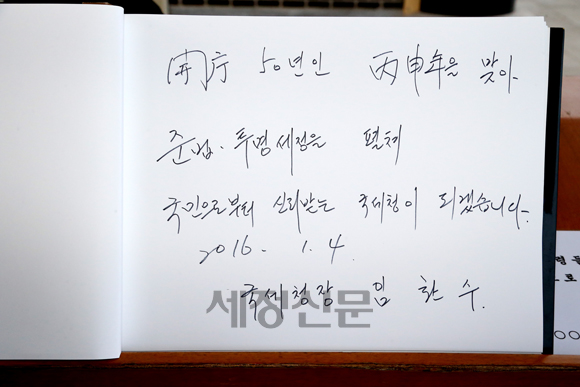 開庁 50년인 丙申年을 맞아
준법·투명세정을 펼쳐
국민으로부터 신뢰받는 국세청이 되겠습니다.
2016. 1. 4.
국세청장 임 환 수.
세정신문
령 등
으로
00